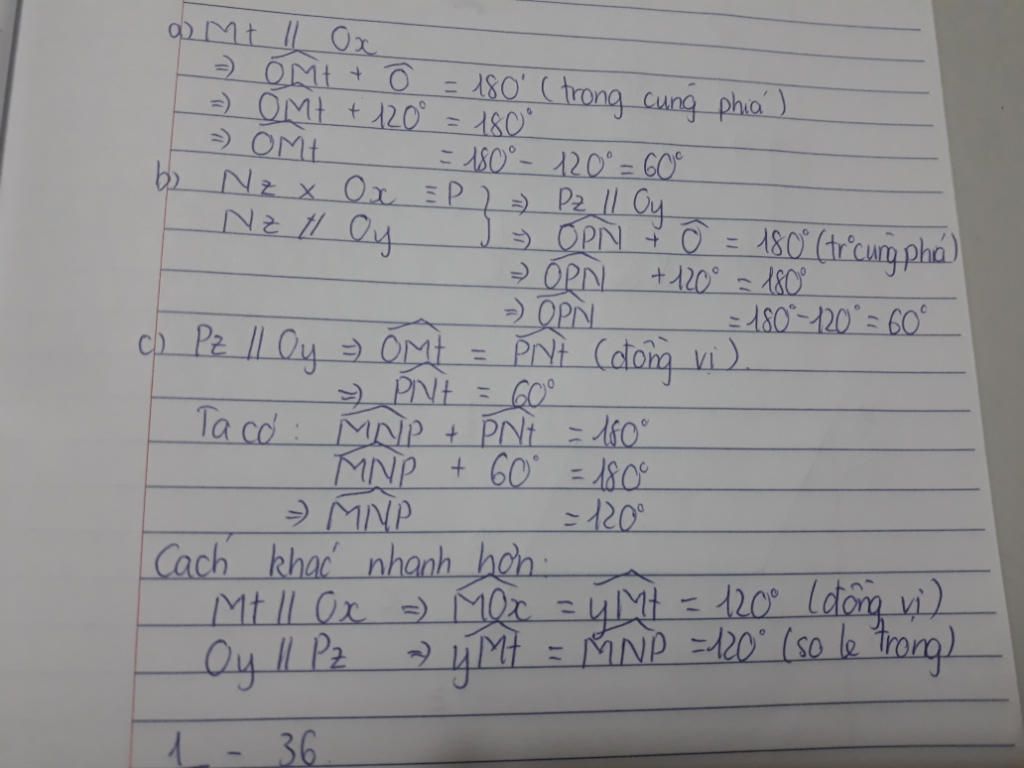 a) Mt // Ox
⇒ OMt + O = 180° (trong cung phiá)
⇒ OMt + 120° = 180°
⇒ OMt = 180° - 120° = 60°
b) Nz x Ox ≡ P } ⇒ Pz // Oy
Nz // Oy ⇒ OPN + O = 180° (tr° cùng phá)
⇒ OPN + 120° = 180°
⇒ OPN = 180° - 120° = 60°
c) Pz // Oy ⇒ OMt = PNt (đồng vị).
⇒ PNt = 60°
Ta có: MNP + PNt = 180°
MNP + 60° = 180°
⇒ MNP = 120°
Cách khác nhanh hơn:
Mt // Ox ⇒ MOx = yMt = 120° (đồng vị)
Oy // Pz ⇒ yMt = MNP = 120° (so le trong)
1 - 36